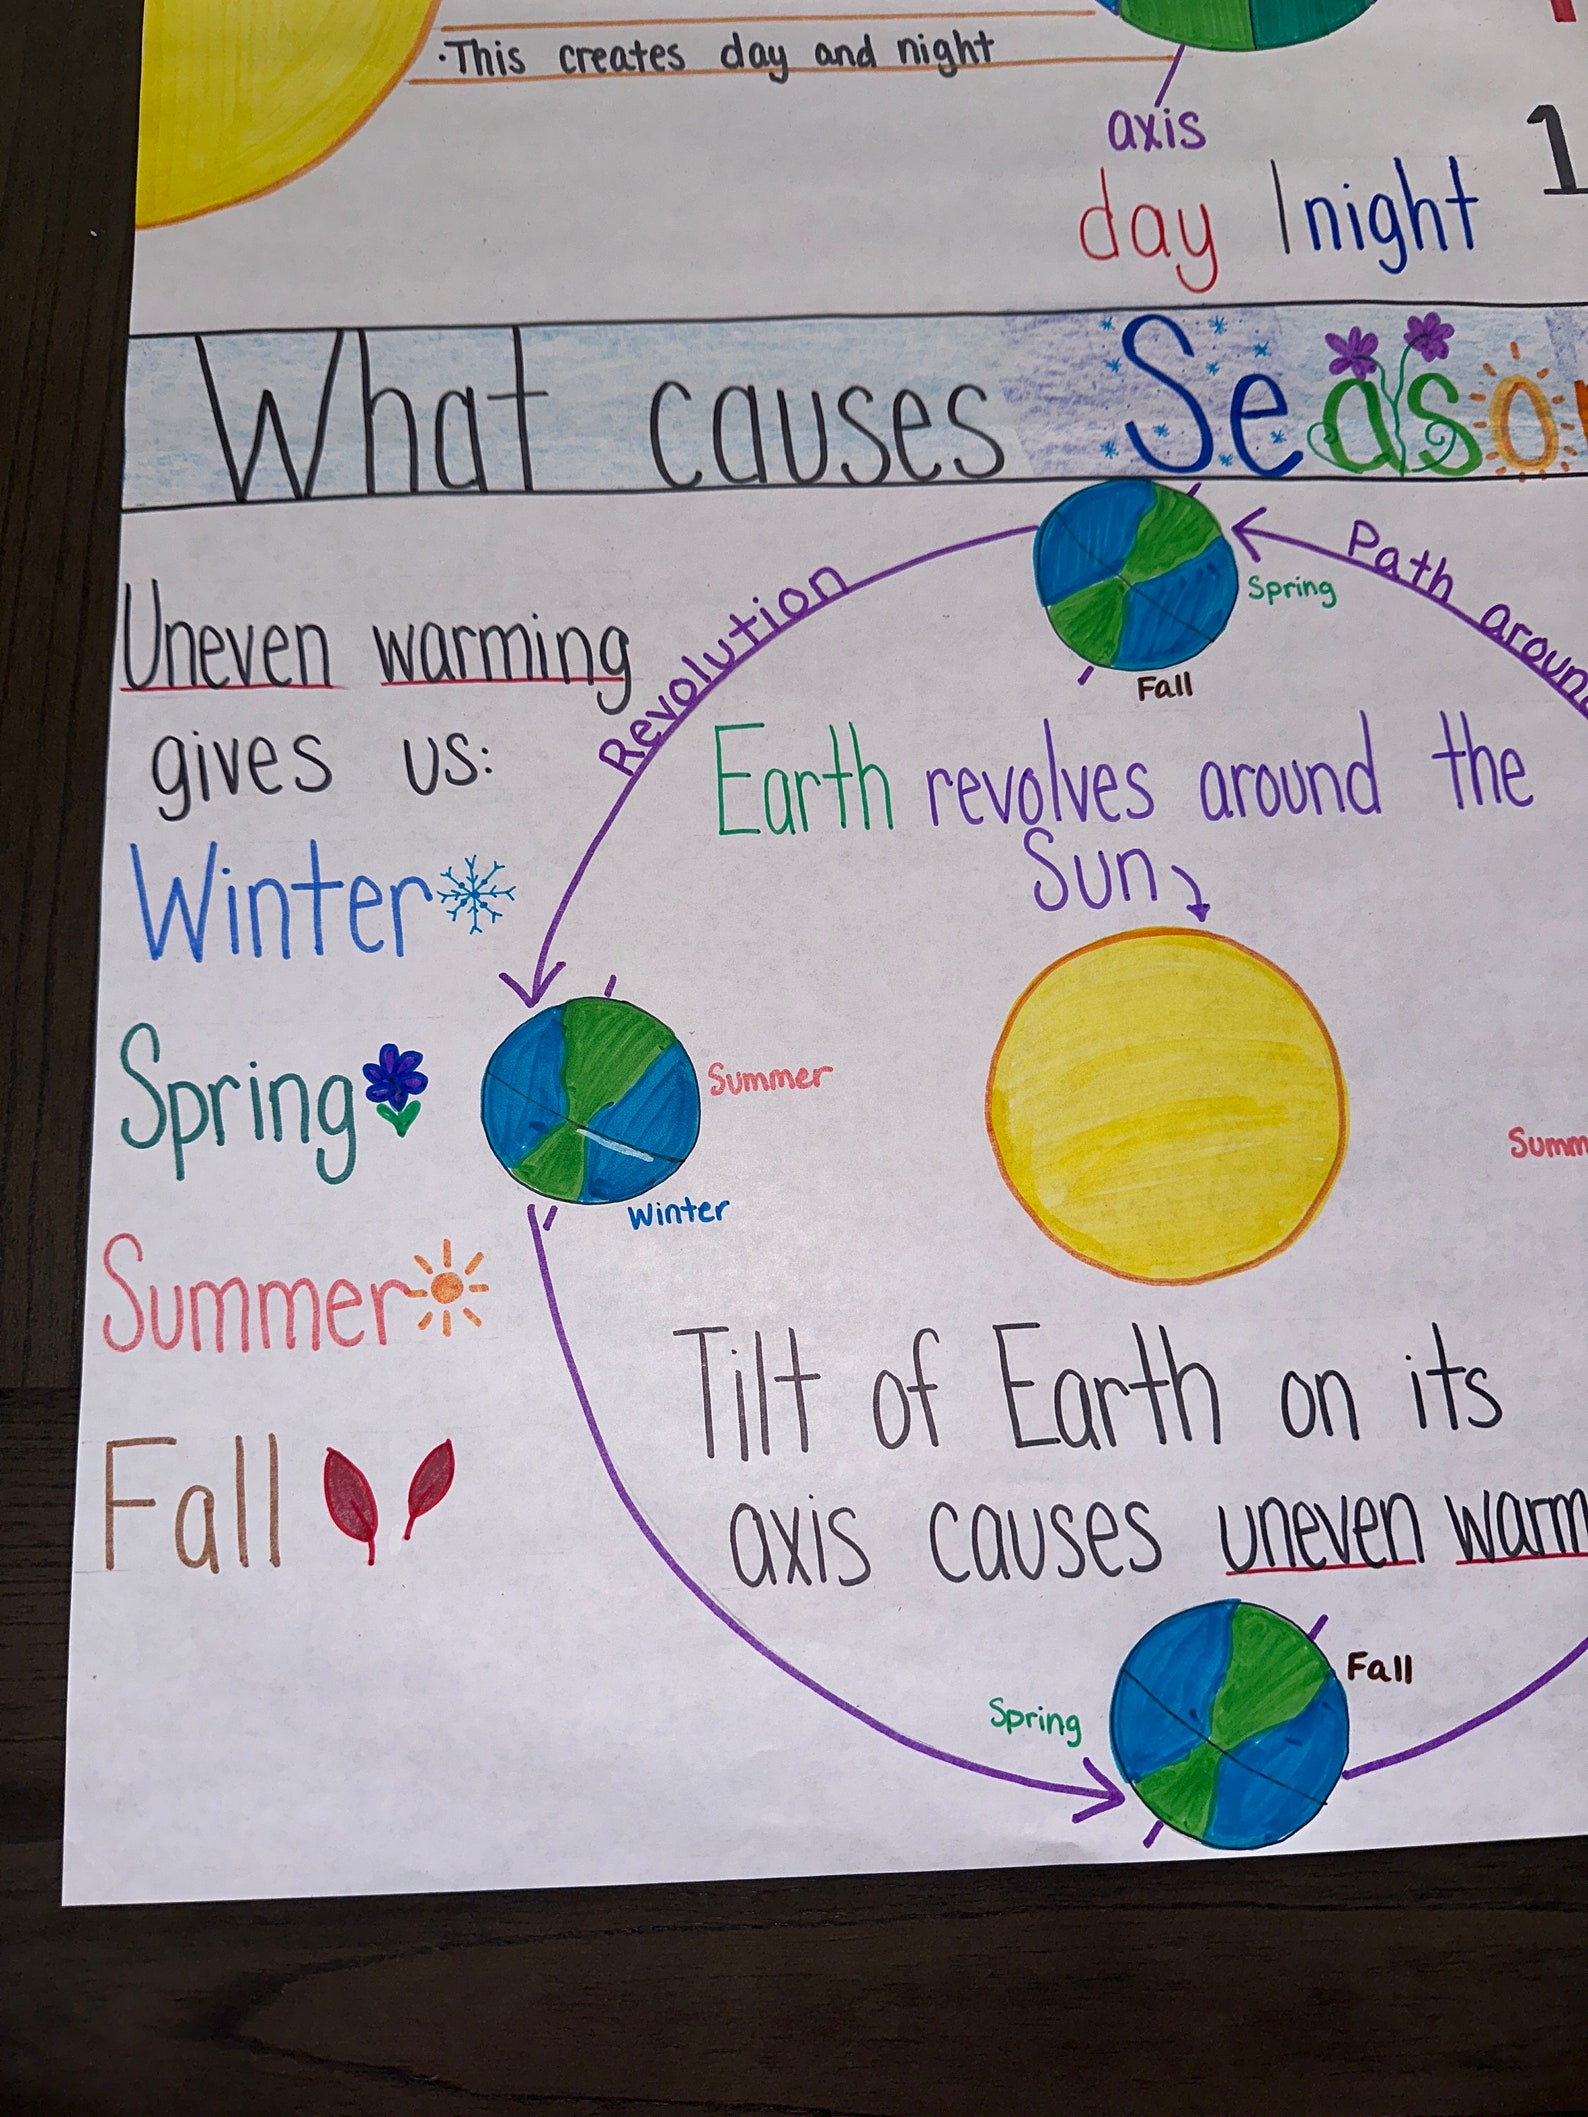 ·This creates day and night
axis
day | night
1
What causes Seaso
Path around
Revolution
Spring
Fall
Uneven warming
gives us:
Winter
Spring
Summer
Fall
Earth revolves around the
Sun
Summer
Winter
Summ
Tilt of Earth on its
axis causes uneven warm
Fall
Spring